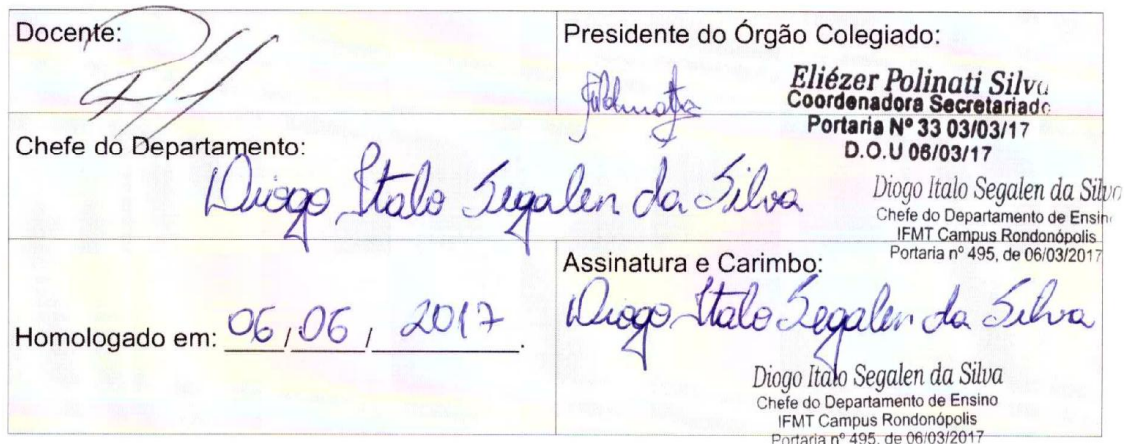 Docente:
Presidente do Órgão Colegiado:
Eliézer Polinati Silva
Coordenadora Secretariado
Portaria Nº 33 03/03/17
D.O.U 06/03/17
Chefe do Departamento:
Diogo Italo Segalen da Silva
Diogo Italo Segalen da Silva
Chefe do Departamento de Ensin
IFMT Campus Rondonópolis
Portaria nº 495, de 06/03/2017
Homologado em: 06/06/2017.
Assinatura e Carimbo:
Diogo Italo Segalen da Silva
Diogo Italo Segalen da Silva
Chefe do Departamento de Ensino
IFMT Campus Rondonópolis
Portaria nº 495, de 06/03/2017